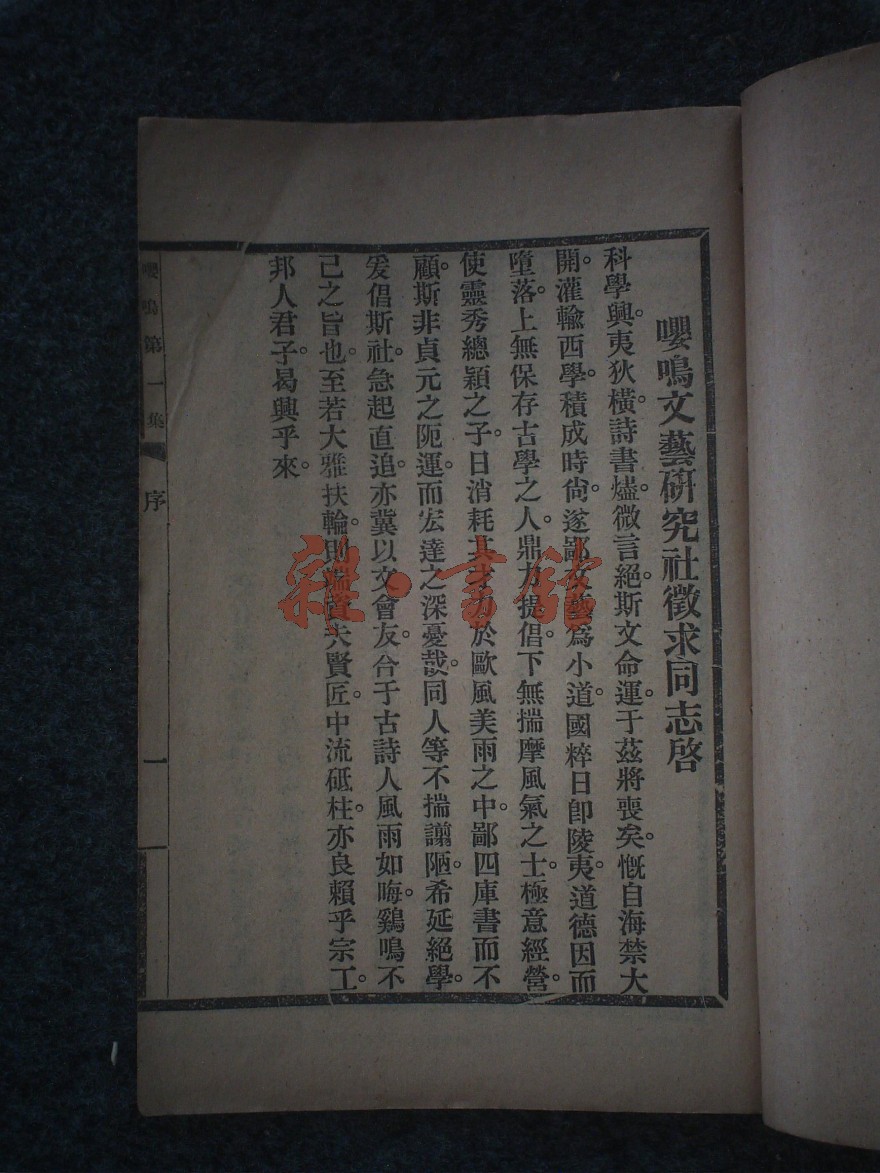 嚶鳴文藝研究社徵求同志啓
科學興。夷狄橫。詩書燼。微言絕。斯文命運。于茲將喪矣。慨自海禁大
開。灌輸西學。積成時尙。遂鄙文藝爲小道。國粹日卽陵夷。道德因而
墮落。上無保存古學之人。鼎力提倡。下無揣摩風氣之士。極意經營。
使靈秀總穎之子。日消耗其才力於歐風美雨之中。鄙四庫書而不
顧。斯非貞元之阨運。而宏達之深憂哉。同人等不揣譾陋。希延絕學。
爰倡斯社。急起直追。亦冀以文會友。合于古詩人風雨如晦。鷄鳴不
己之旨也。至若大雅扶輪。則端資夫賢匠。中流砥柱。亦良賴乎宗工。
邦人君子。曷興乎來。
嚶鳴第一集
序
一
雜·書館